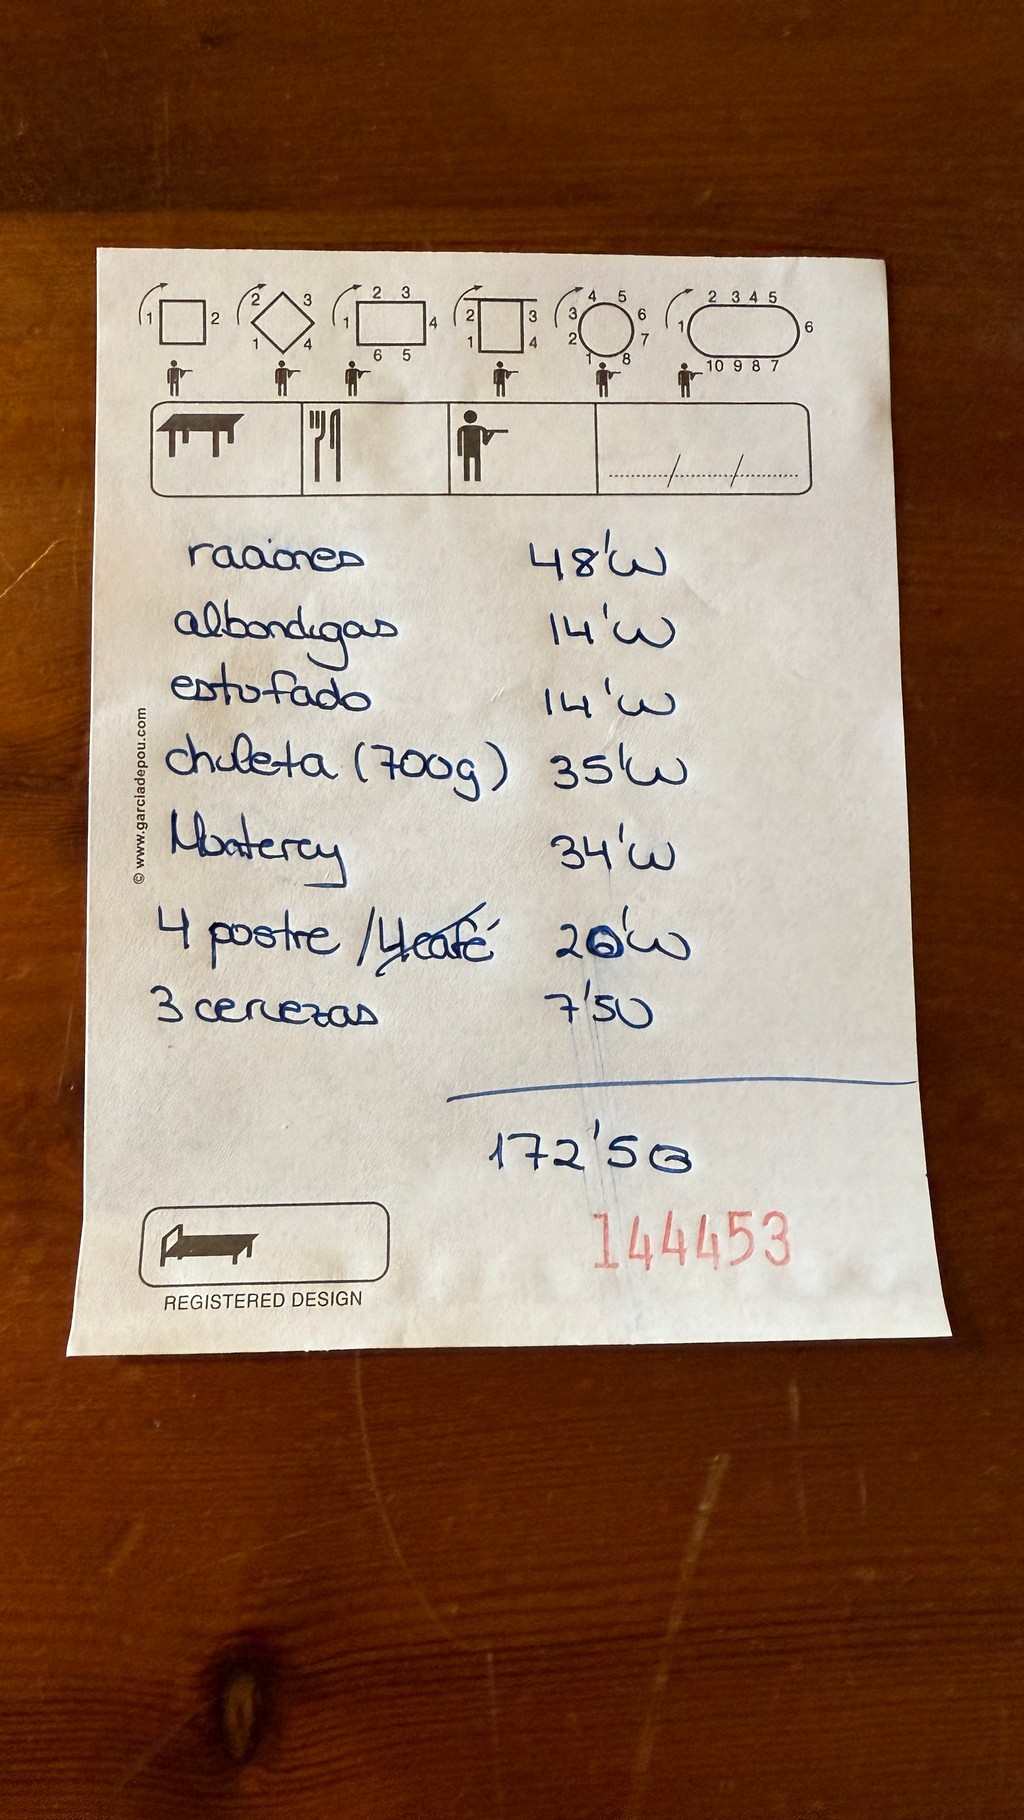 1 2 2 3 1 4 2 3 1 4 6 5 2 3 1 4 4 5 3 6 2 7 1 8 2 3 4 5 1 6 10 9 8 7
raciones 48'00
albondigas 14'00
estofado 14'00
chuleta (700g) 35'00
Monterey 34'00
4 postre / 4 café 20'00
3 cervezas 7'50
172'50
144453
REGISTERED DESIGN
© www.garciadepou.com